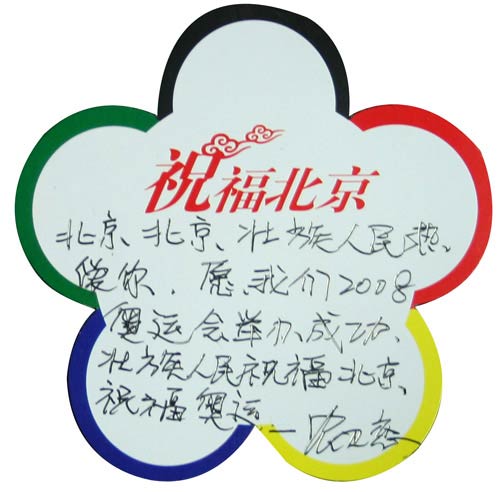 祝福北京
北京、北京、壮族人民
你、愿、我们2008
奥运会举办成功、
壮族人民祝福北京、
祝福奥运—